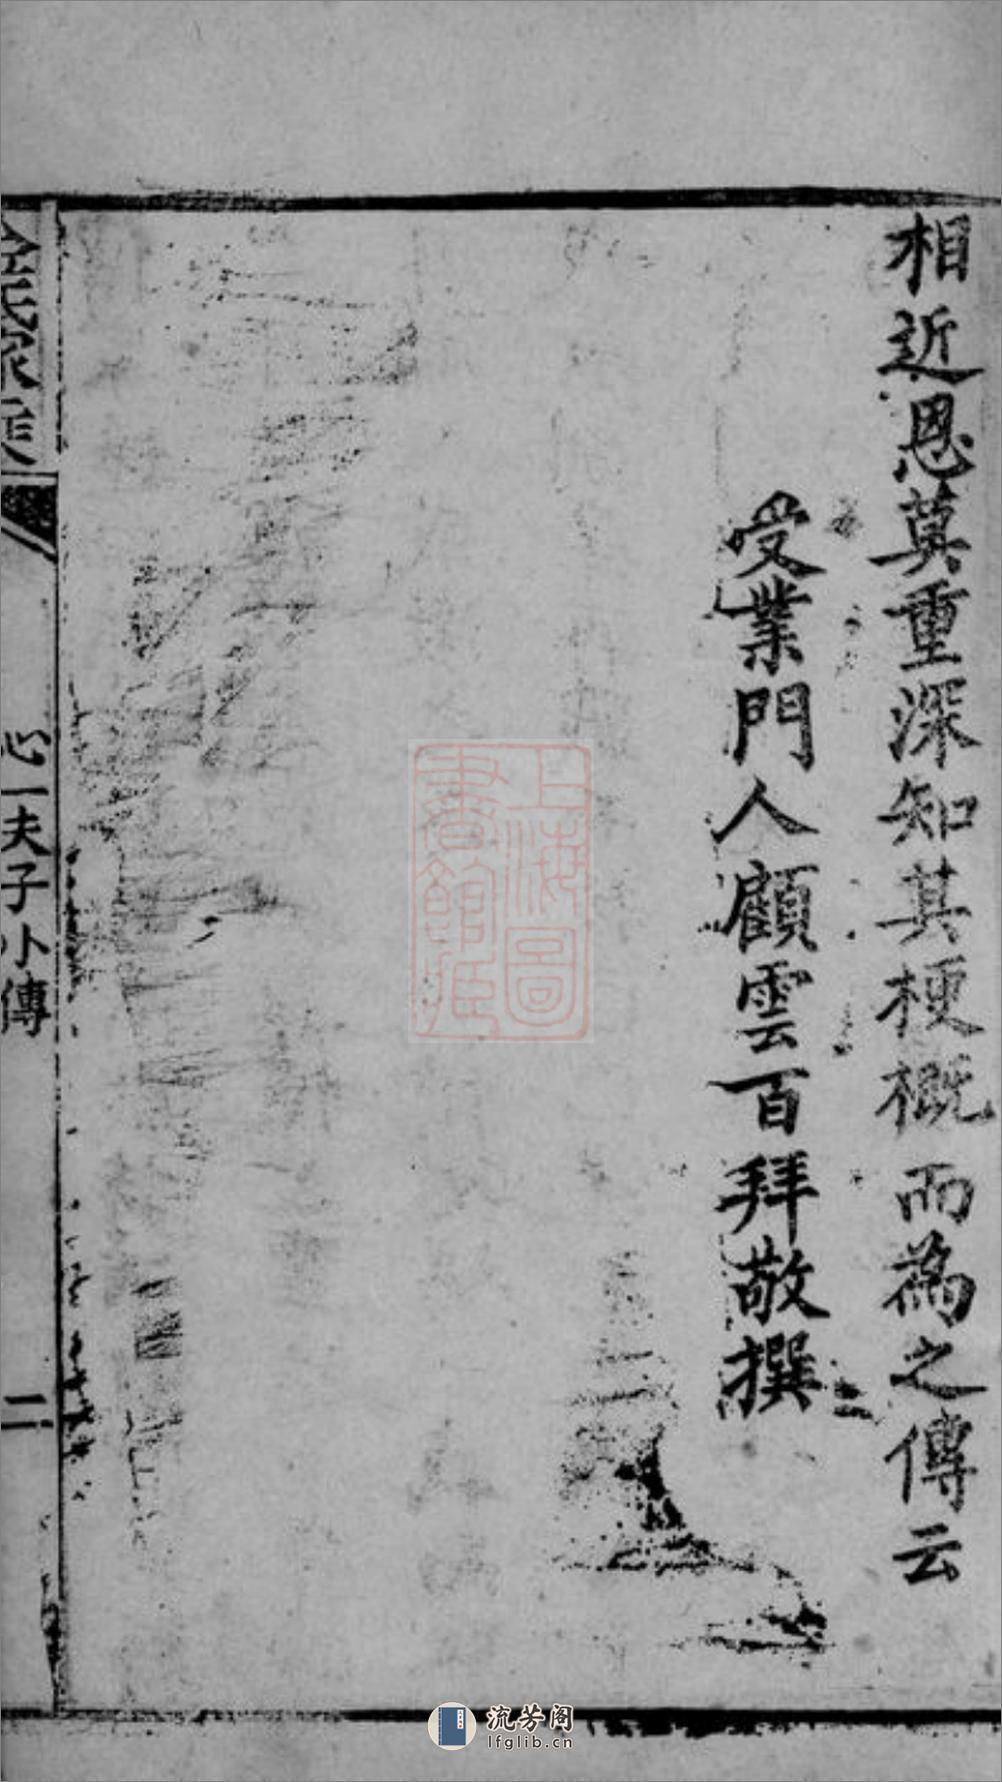 相近恩莫重深知其梗概而爲之傳云
受業門人顧雲百拜敬撰
心一夫子小傳
二
上海圖
書館藏
流芳阁
lfglib.cn